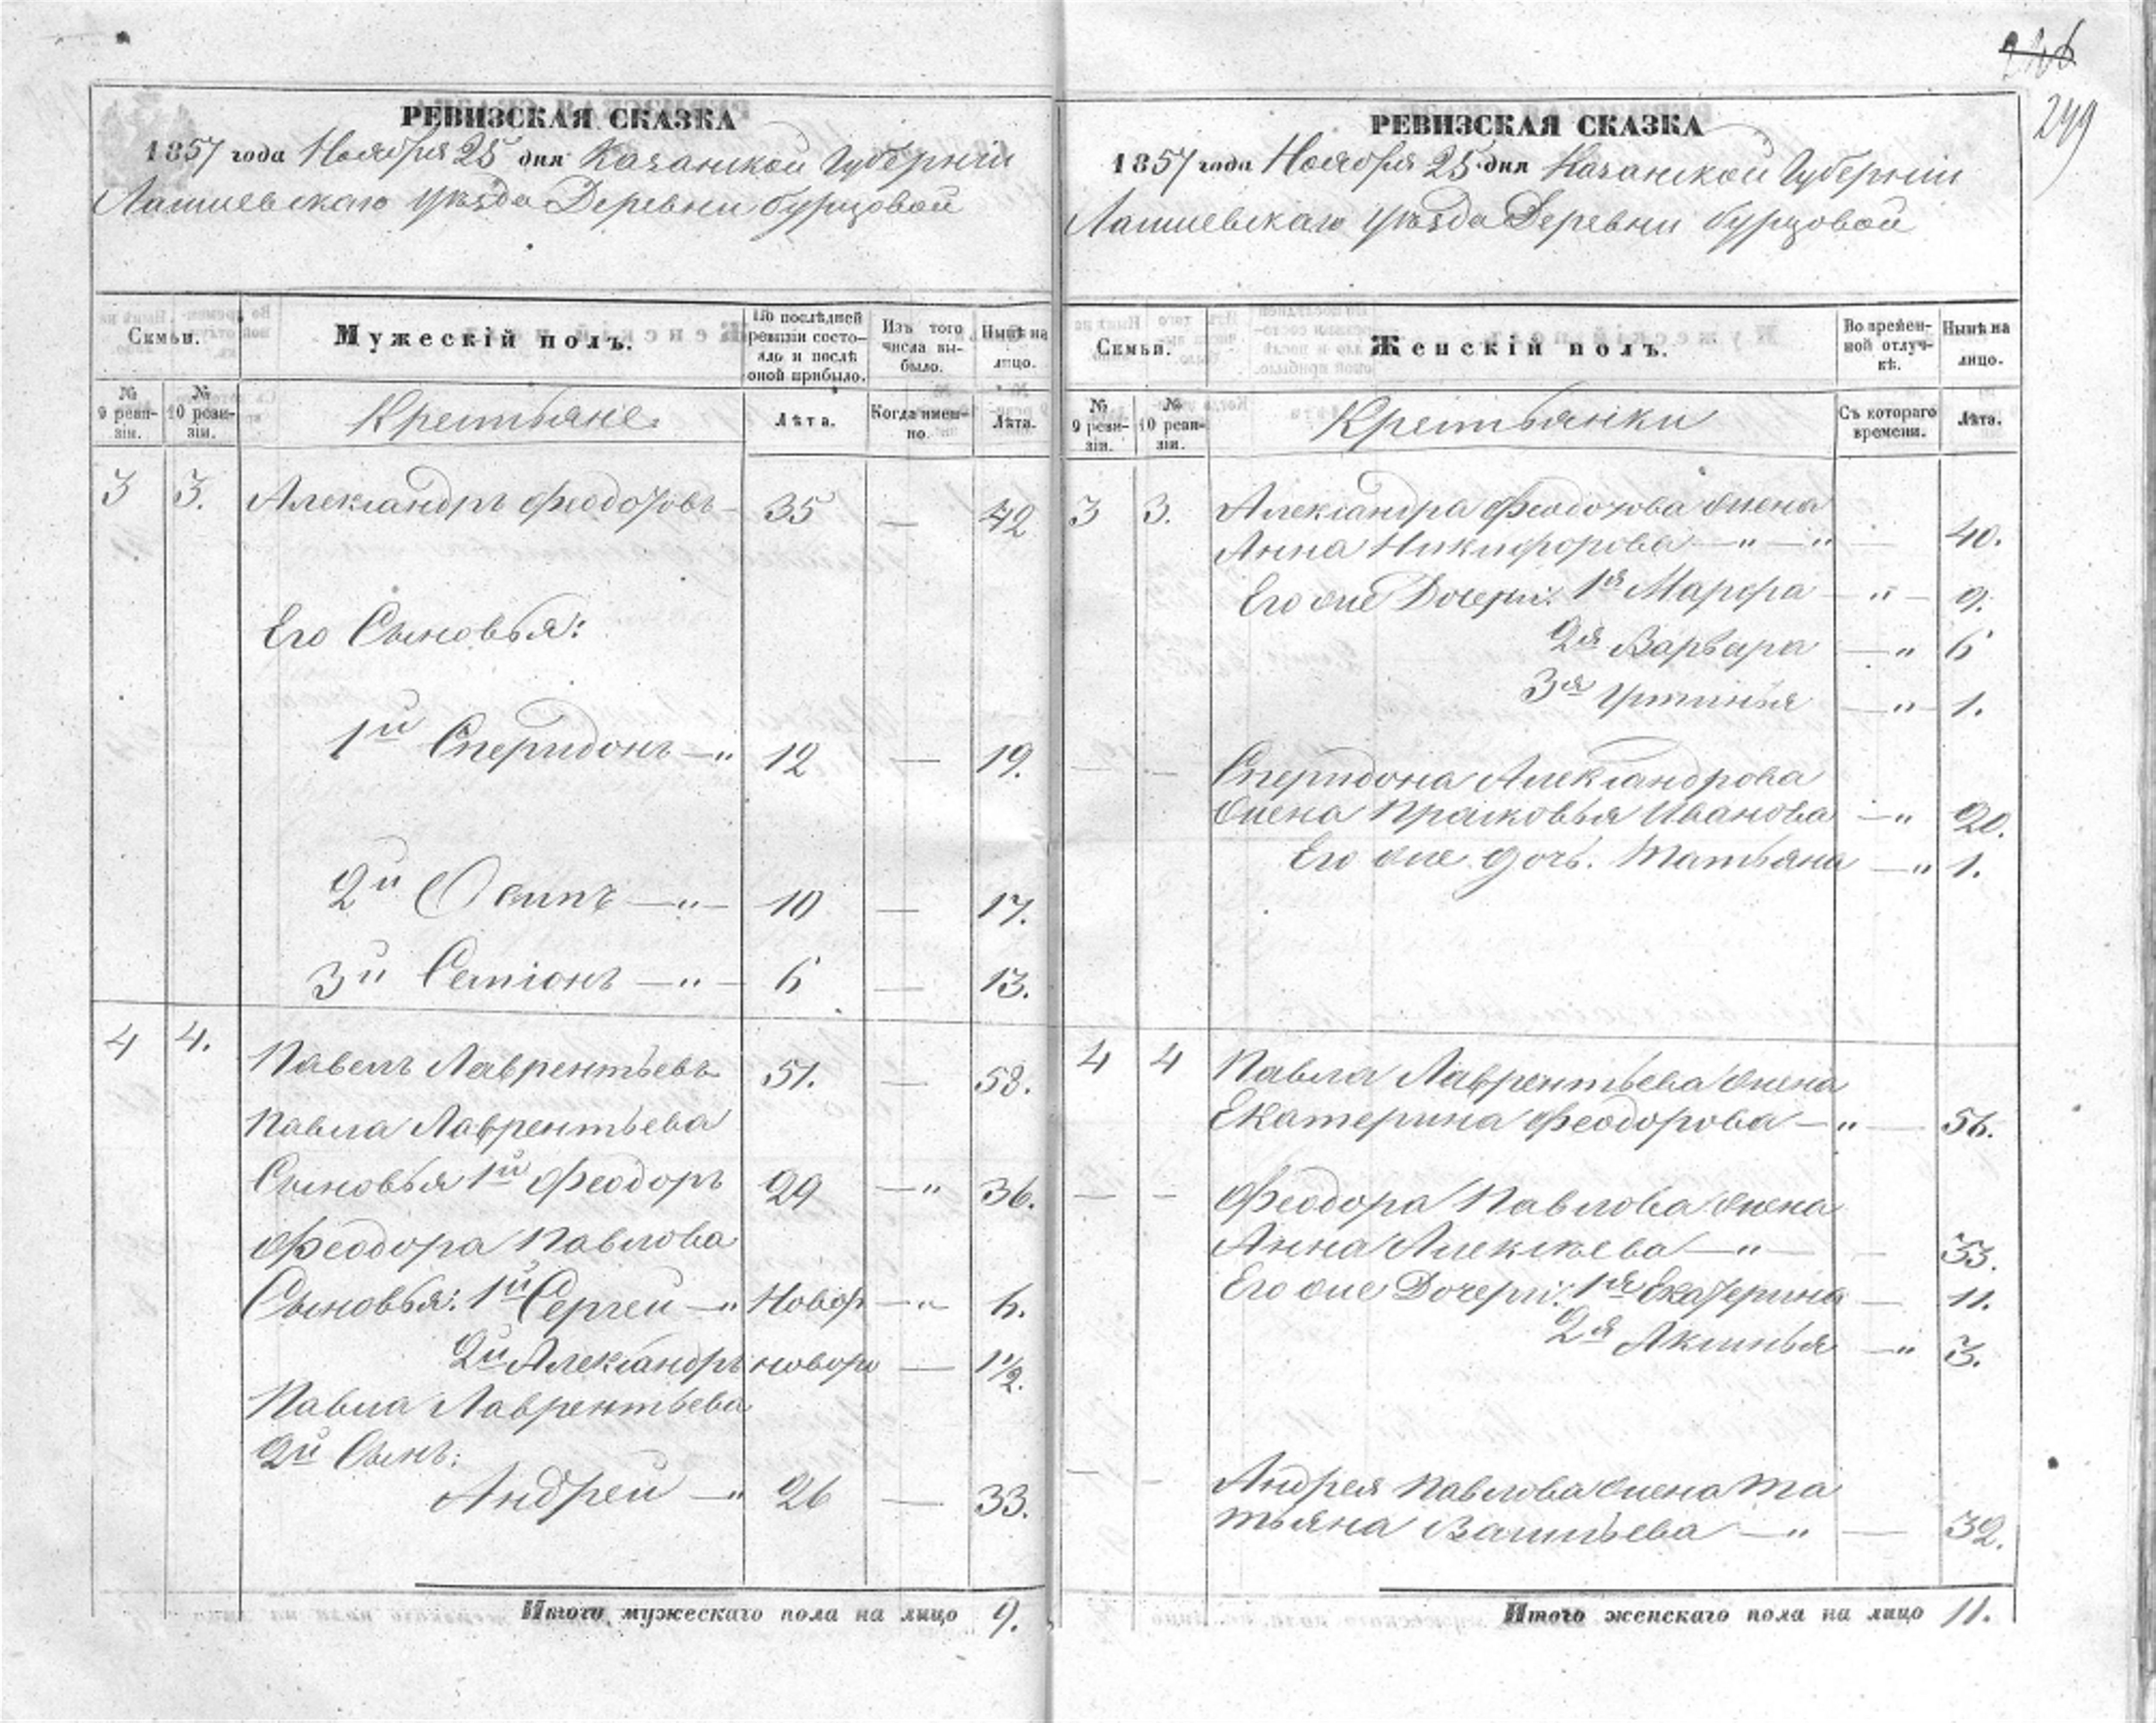 246
249
РЕВИЗСКАЯ СКАЗКА
1857 года Ноября 25 дня Казанской Губерніи
Лаишевскаго Уѣзда Деревни Бурцовой
Семьи.
Мужескій полъ.
По послѣдней ревизіи состояло и послѣ оной прибыло.
Изъ того числа выбыло.
Нынѣ на лицо.
№ 9 ревизіи.
№ 10 ревизіи.
Крестьяне
Лѣта.
Когда именно.
Лѣта.
3 3. Александръ Феодотовъ 35 — 42
Его Сыновья:
1й Спиридонъ —„ 12 — 19.
2й Осипъ —„— 10 — 17.
3й Семіонъ —„— 6 — 13.
4 4. Павелъ Лаврентьевъ 51. — 58.
Павла Лаврентьева
Сыновья 1й Феодоръ 29 —„ 36.
Феодора Павлова
Сыновья: 1й Сергей —„ Новор —„ 6.
2й Александръ новоро — 1 1/2.
Павла Лаврентьева
2й Сынъ:
Андрей —„ 26 — 33.
Итого мужескаго пола на лицо 9.
РЕВИЗСКАЯ СКАЗКА
1857 года Ноября 25 дня Казанской Губерніи
Лаишевскаго Уѣзда Деревни Бурцовой
Семьи.
Женскій полъ.
Во времен-
ной отлуч-
кѣ.
Нынѣ на
лицо.
№ 9 ревизіи.
№ 10 ревизіи.
Крестьянки
Съ котораго
времени.
Лѣта.
3 3. Александра Феодотова жена
Анна Никифорова —„—„ — 40.
Его же Дочери: 1я Марфа —„— 9.
2я Варвара —„ 6
3я Устинья —„ 1.
— — Спиридона Александрова
жена Прасковья Иванова —„ 20.
Его же дочь. Татьяна —„ 1.
4 4 Павла Лаврентьева жена
Екатерина Феодорова —„— 56.
— — Феодора Павлова жена
Анна Алексѣева —„— — 33.
Его же Дочери: 1я Екатерина — 11.
2я Аксинья —„ 3.
— — Андрея Павлова жена Та
тьяна Васильева —„ — 32.
Итого женскаго пола на лицо 11.